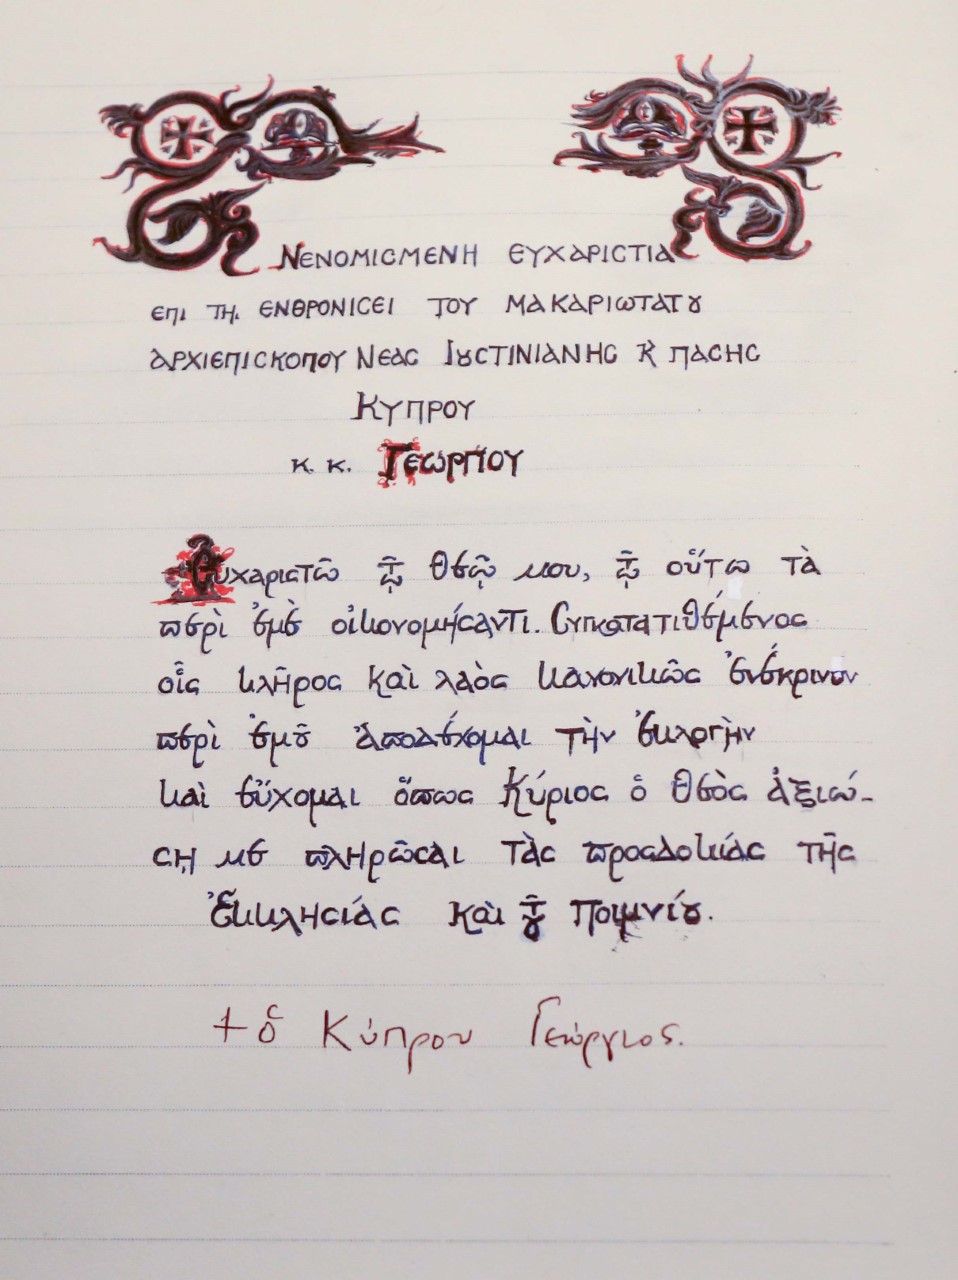 Νενομισμενη ευχαριστια
επι τη ενθρονισει του μακαριωτατου
αρχιεπισκοπου Νεας Ιουστινιανης κ πασης
Κυπρου
κ. κ. Γεωργιου
Ευχαριστῶ τῷ Θεῷ μου, τῷ οὕτω τὰ
περὶ ἐμὲ οἰκονομήσαντι. Συγκατατιθέμενος
οἷς κλῆρος καὶ λαὸς κανονικῶς ἐνέκρινον
περὶ ἐμοῦ ἀποδέχομαι τὴν ἐκλογὴν
καὶ εὔχομαι ὅπως Κύριος ὁ Θεὸς ἀξιώ-
σῃ με πληρῶσαι τὰς προσδοκίας τῆς
Ἐκκλησίας καὶ τοῦ Ποιμνίου.
+ ὁ Κύπρου Γεώργιος.